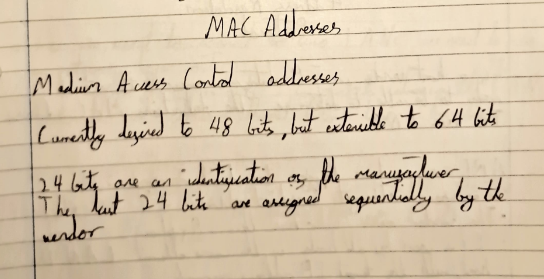 MAC Addresses
Medium Access Control addresses
Currently desired to 48 bits, but extensible to 64 bits
24 bits are an identification of the manufacturer
The last 24 bits are assigned sequentially by the
vendor